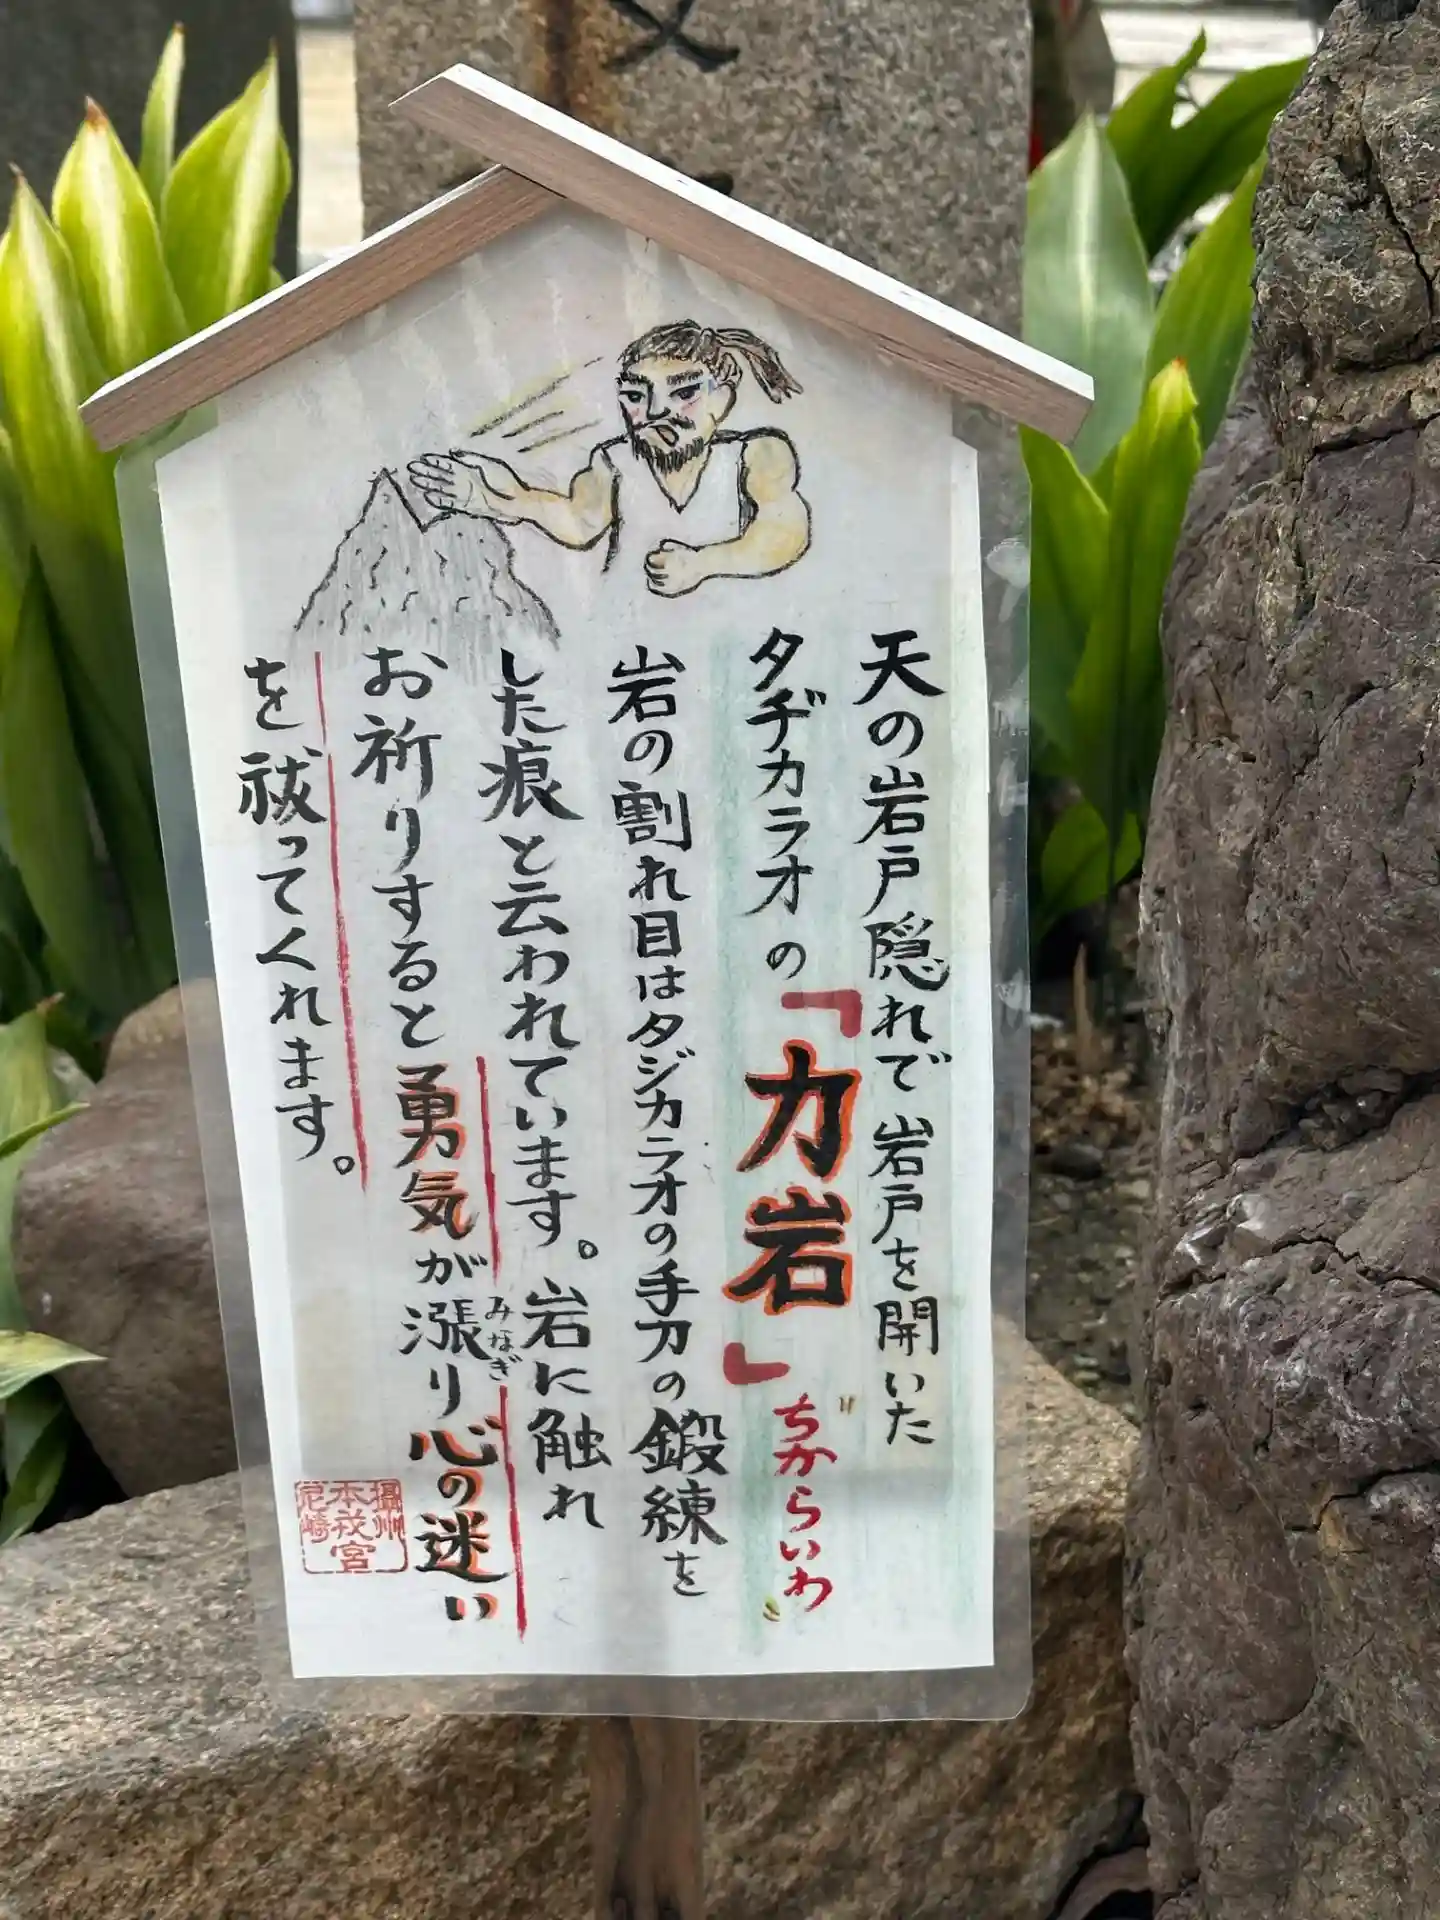 天の岩戸隠れで岩戸を開いた
タヂカラオの「力岩」ちからいわ
岩の割れ目はタジカラオの手刀の鍛練を
した痕と云われています。岩に触れ
お祈りすると勇気が漲り心の迷い
みなぎ
を祓ってくれます。
攝州
本戎宮
尼崎